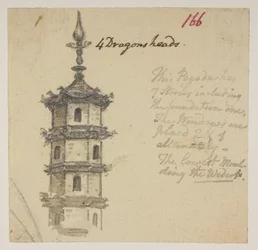 166
4 Dragons heads.
This Pagoda has
7 Stories including
the foundation one,
The Windows are
placed 2 & 
alternately -
The Lowest Moul-
ding the Widest.